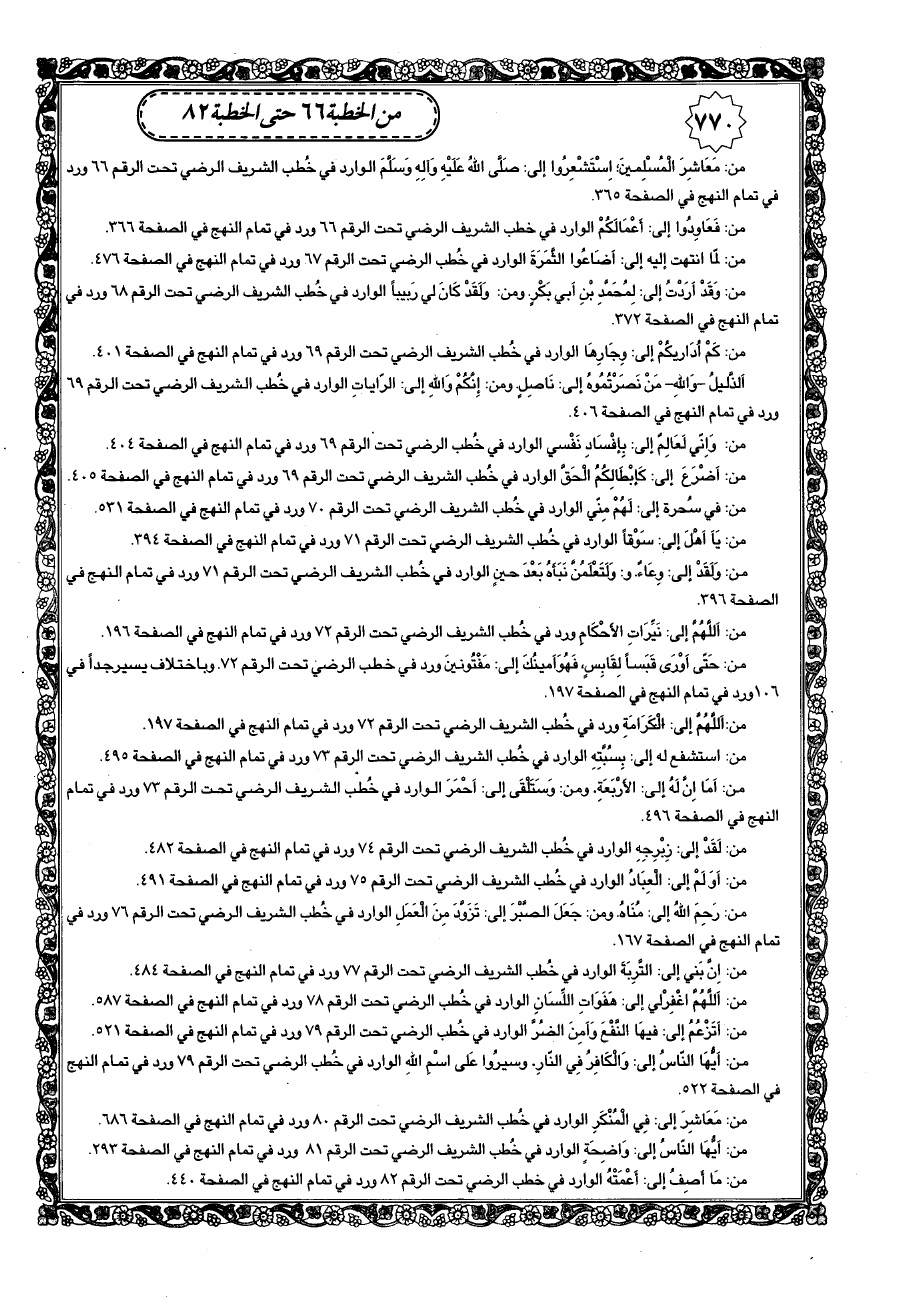 ٧٧٠
من الخطبة ٦٦ حتى الخطبة ٨٢
من: مَعَاشِرَ الْمُسْلِمينَ؛ اِسْتَشْعِرُوا إلى: صَلَّى اللهُ عَلَيْهِ وَآلِهِ وَسَلَّمَ الوارد في خُطب الشريف الرضي تحت الرقم ٦٦ ورد
في تمام النهج في الصفحة ٣٦٥.
من: فَعَاوِدُوا إلى: أَعْمَالَكُمْ الوارد في خطب الشريف الرضي تحت الرقم ٦٦ ورد في تمام النهج في الصفحة ٣٦٦.
من: لمّا انتهت إليه إلى: أَضَاعُوا الثَّمَرَةَ الوارد في خُطب الشريف الرضي تحت الرقم ٦٧ ورد في تمام النهج في الصفحة ٤٧٦.
من: وَقَدْ أَرَدْتُ إلى: لِمُحَمَّدِ بْنِ أَبي بَكْرٍ. ومن: وَلَقَدْ كَانَ لي رَبيباً الوارد في خُطب الشريف الرضي تحت الرقم ٦٨ ورد في
تمام النهج في الصفحة ٣٧٢.
من: كَمْ أُدَاريكُمْ إلى: وِجَارِهَا الوارد في خُطب الشريف الرضي تحت الرقم ٦٩ ورد في تمام النهج في الصفحة ٤٠١.
اَلذَّليلُ -وَاللهِ- مَنْ نَصَرْتُمُوهُ إلى: نَاصِلٍ. ومن: إِنَّكُمْ وَاللهِ إلى: الرّايَاتِ الوارد في خُطب الشريف الرضي تحت الرقم ٦٩
ورد في تمام النهج في الصفحة ٤٠٦.
من: وَإِنّي لَعَالِمٌ إلى: بِإِفْسَادِ نَفْسي الوارد في خُطب الشريف الرضي تحت الرقم ٦٩ ورد في تمام النهج في الصفحة ٤٠٤.
من: أَضْرَعَ إلى: كَإِبْطَالِكُمُ الْحَقَّ الوارد في خُطب الشريف الرضي تحت الرقم ٦٩ ورد في تمام النهج في الصفحة ٤٠٥.
من: في سُحرة إلى: لَهُمْ مِنّي الوارد في خُطب الشريف الرضي تحت الرقم ٧٠ ورد في تمام النهج في الصفحة ٥٣١.
من: يَا أَهْلَ إلى: سَوْقاً الوارد في خُطب الشريف الرضي تحت الرقم ٧١ ورد في تمام النهج في الصفحة ٣٩٤.
من: وَلَقَدْ إلى: وِعَاءٌ. و: وَلَتَعْلَمُنَّ نَبَأَهُ بَعْدَ حينٍ الوارد في خُطب الشريف الرضي تحت الرقم ٧١ ورد في تمام النهج في
الصفحة ٣٩٦.
من: اَللَّهُمَّ إلى: نَيِّرَاتِ الأَحْكَامِ ورد في خُطب الشريف الرضي تحت الرقم ٧٢ ورد في تمام النهج في الصفحة ١٩٦.
من: حَتّى أَوْرَى قَبَساً لِقَابِسٍ، فَهُوَ أَمينُكَ إلى: مَفْتُونينَ ورد في خطب الرضي تحت الرقم ٧٢. وباختلاف يسير جداً في
١٠٦ ورد في تمام النهج في الصفحة ١٩٧.
من: اَللَّهُمَّ إلى: الْكَرَامَةِ ورد في خُطب الشريف الرضي تحت الرقم ٧٢ ورد في تمام النهج في الصفحة ١٩٧.
من: استشفع له إلى: بِسُبَّتِهِ الوارد في خُطب الشريف الرضي تحت الرقم ٧٣ ورد في تمام النهج في الصفحة ٤٩٥.
من: أَمَا إِنَّ لَهُ إلى: الأَرْبَعَةِ. ومن: وَسَتَلْقَى إلى: أَحْمَرَ الوارد في خُطب الشريف الرضي تحت الرقم ٧٣ ورد في تمام
النهج في الصفحة ٤٩٦.
من: لَقَدْ إلى: زِبْرِجِهِ الوارد في خُطب الشريف الرضي تحت الرقم ٧٤ ورد في تمام النهج في الصفحة ٤٨٢.
من: أَوَلَمْ إلى: الْعِبَادُ الوارد في خُطب الشريف الرضي تحت الرقم ٧٥ ورد في تمام النهج في الصفحة ٤٩١.
من: رَحِمَ اللهُ إلى: مُنَاهُ. ومن: جَعَلَ الصَّبْرَ إلى: تَزَوَّدَ مِنَ الْعَمَلِ الوارد في خُطب الشريف الرضي تحت الرقم ٧٦ ورد في
تمام النهج في الصفحة ١٦٧.
من: إِنَّ بَني إلى: التَّرِبَةَ الوارد في خُطب الشريف الرضي تحت الرقم ٧٧ ورد في تمام النهج في الصفحة ٤٨٤.
من: اَللَّهُمَّ اغْفِرْلي إلى: هَفَوَاتِ اللِّسَانِ الوارد في خُطب الشريف الرضي تحت الرقم ٧٨ ورد في تمام النهج في الصفحة ٥٨٧.
من: أَتَزْعُمُ إلى: فيهَا النَّفْعَ وَأَمِنَ الضُّرَّ الوارد في خُطب الشريف الرضي تحت الرقم ٧٩ ورد في تمام النهج في الصفحة ٥٢١.
من: أَيُّهَا النّاسُ إلى: وَالْكَافِرُ فِي النّارِ. وسيرُوا عَلَى اسْمِ اللهِ الوارد في خُطب الرضي تحت الرقم ٧٩ ورد في تمام النهج
في الصفحة ٥٢٢.
من: مَعَاشِرَ إلى: فِي الْمُنْكَرِ الوارد في خُطب الشريف الرضي تحت الرقم ٨٠ ورد في تمام النهج في الصفحة ٦٨٦.
من: أَيُّهَا النّاسُ إلى: وَاضِحَةٍ الوارد في خُطب الشريف الرضي تحت الرقم ٨١ ورد في تمام النهج في الصفحة ٢٩٣.
من: مَا أَصِفُ إلى: أَعْمَتْهُ الوارد في خطب الرضي تحت الرقم ٨٢ ورد في تمام النهج في الصفحة ٤٤٠.